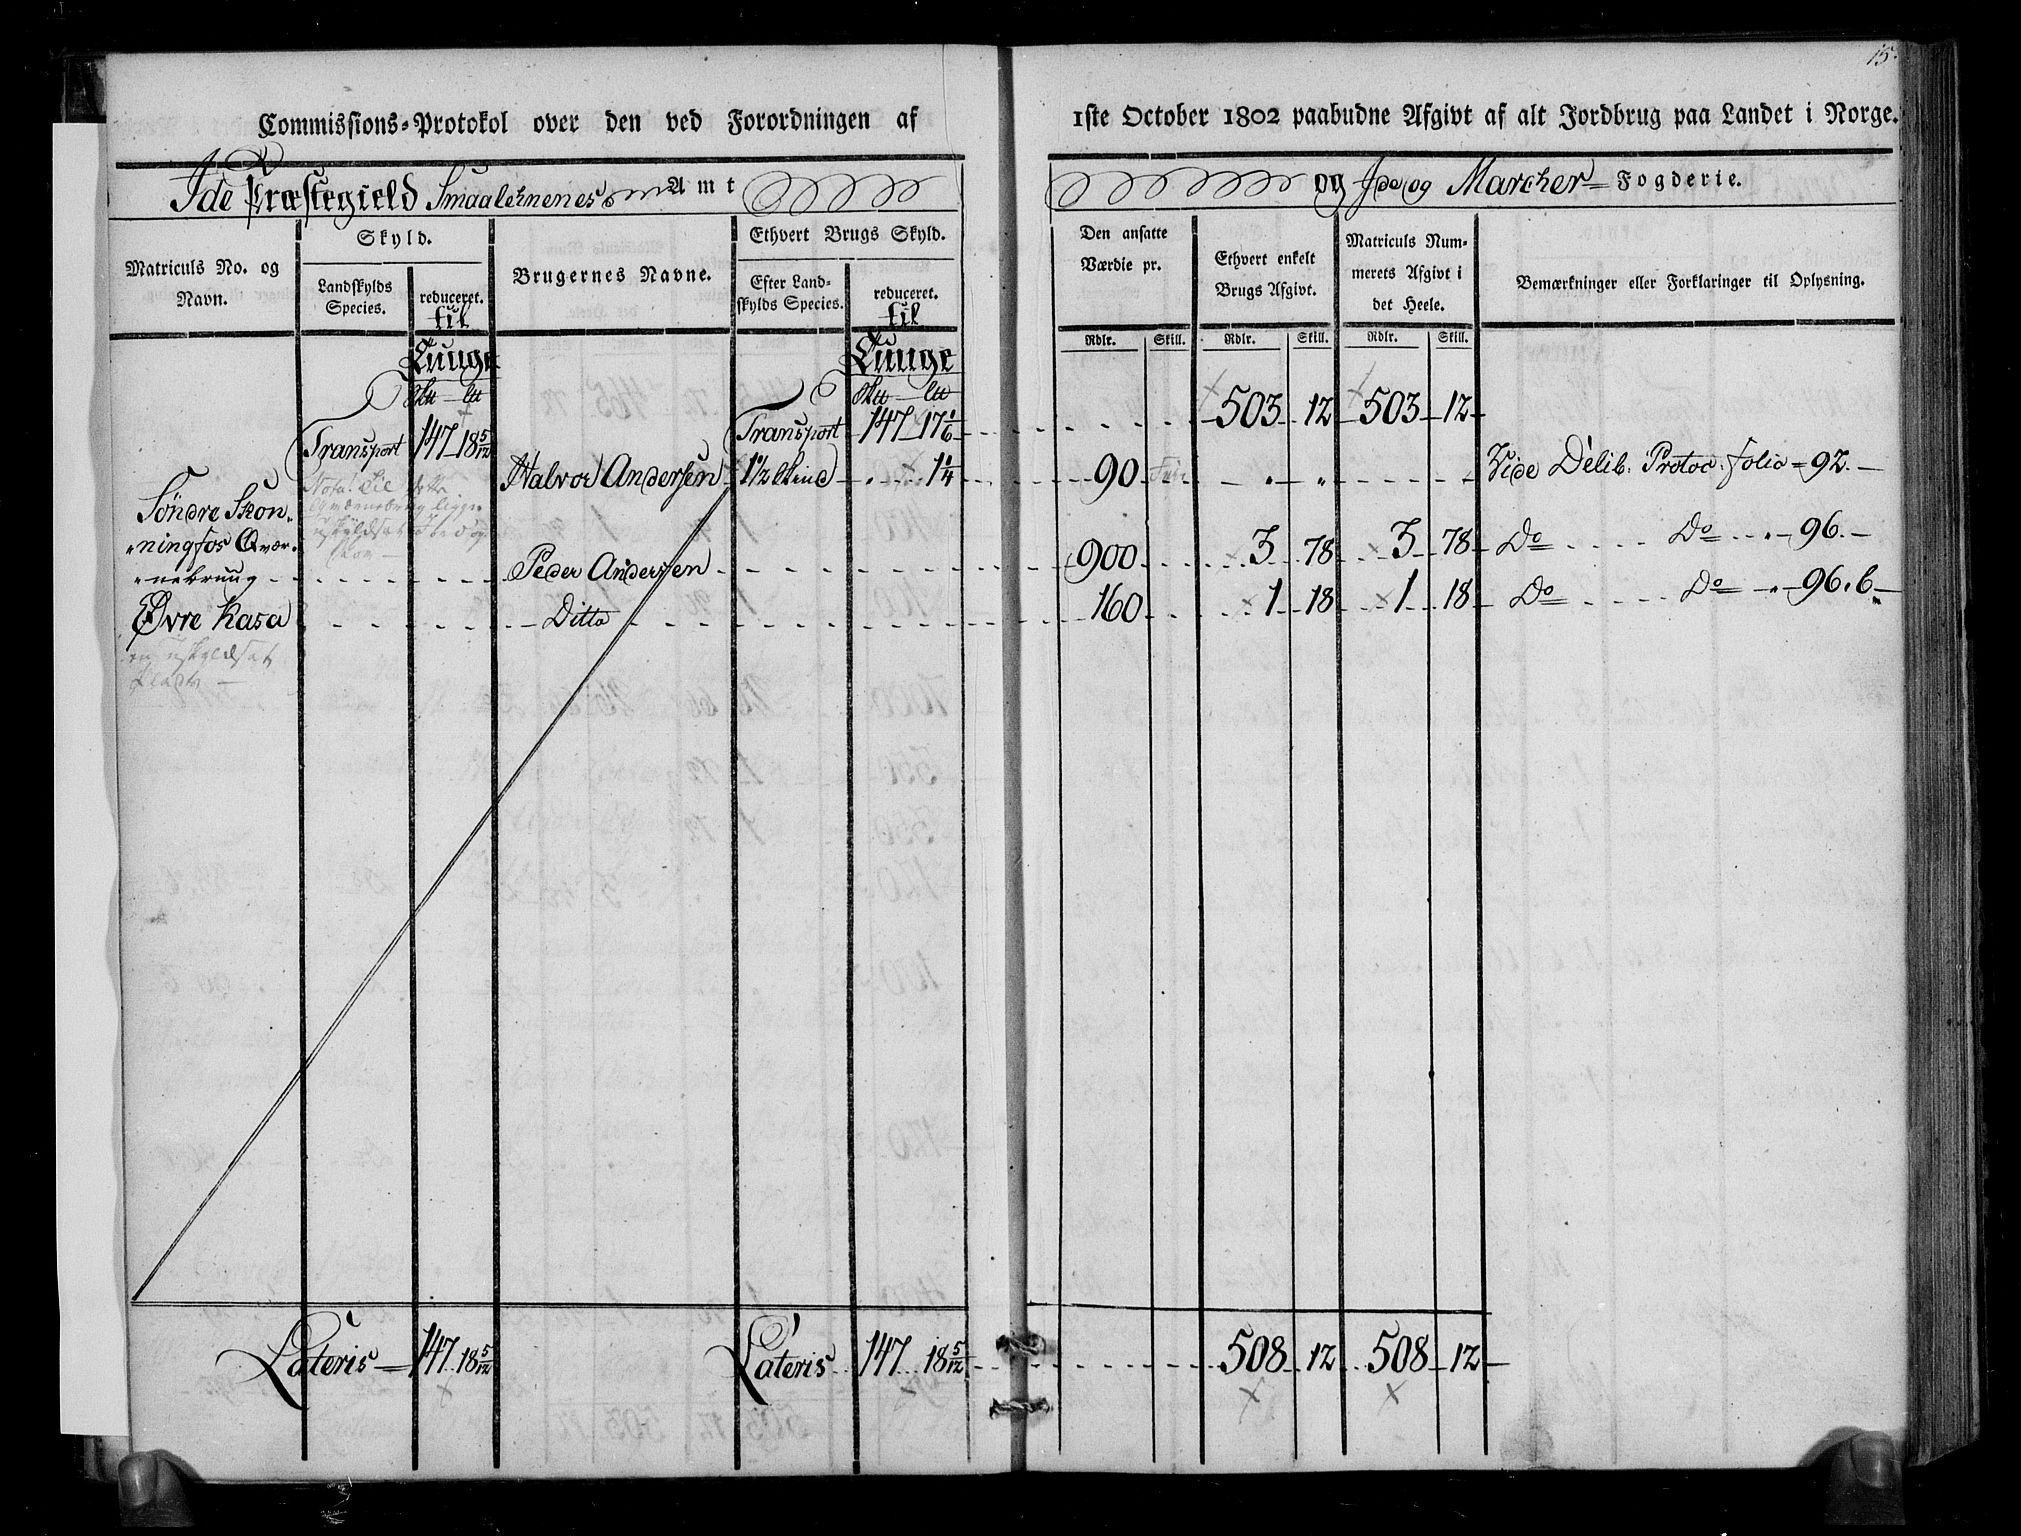 15.
Commissions-Protokol over den ved Forordningen af 1ste October 1802 paabudne Afgivt af alt Jordbrug paa Landet i Norge.
Ide Præstegield Smaalehnenes Amt og Ide og Marcher Fogderie.
Matriculs No. og Navn.
Skyld.
Landskylds Species.
reduceret. til
Brugernes Navne.
Ethvert Brugs Skyld.
Efter Landskylds Species.
reduceret. til
Den ansatte Værdie pr.
Ethvert enkelt Brugs Afgivt.
Matriculs Nummerets Afgivt i det Heele.
Bemærkninger eller Forklaringer til Oplysning.
Rdlr. Skill. Rdlr. Skill. Rdlr. Skill.
Tunge Tunge
Transport 147 18 5/12 Transport 147 17 1/6 503 12 503 12
Halvor Andersen 1 1/2 Skind 1 1/4 90 Frie Vide Delib. Protoc. folio 92.
Nota
Søndre Skon-
ningfos Qvær-
nebrug Peder Andersen 900 3 78 3 78 Do Do 96.
Øvre Kasa Ditto 160 1 18 1 18 Do Do 96. b.
en uskyldsat
Plads
Lateris 147 18 5/12 Lateris 147 18 5/12 508 12 508 12